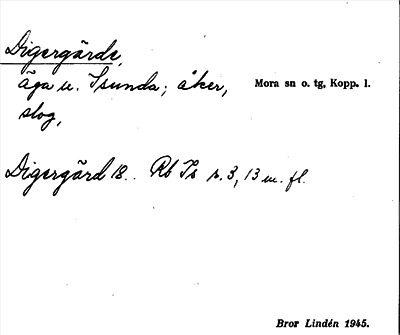 Digergärde,
äga u. Isunda; åker, Mora sn o. tg, Kopp. l.
slog,
Digergärd 18.. Rb Is s. 3, 13 m. fl.
Bror Lindén 1945.